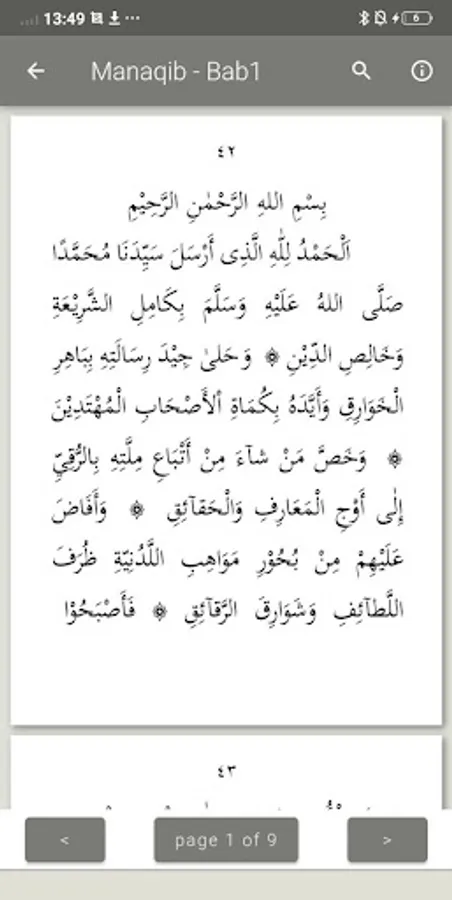 13:49 ...
6
Manaqib - Bab1
٤٢
بِسْمِ اللهِ الرَّحْمٰنِ الرَّحِيْمِ
اَلْحَمْدُ لِلّٰهِ الَّذِى أَرْسَلَ سَيِّدَنَا مُحَمَّدًا
صَلَّى اللهُ عَلَيْهِ وَسَلَّمَ بِكَامِلِ الشَّرِيْعَةِ
وَخَالِصِ الدِّيْنِ ۞ وَحَلىٰ جِيْدَ رِسَالَتِهِ بِبَاهِرِ
الْخَوَارِقِ وَأَيَّدَهُ بِكُمَاةِ اْلأَصْحَابِ الْمُهْتَدِيْنَ
۞ وَخَصَّ مَنْ شآءَ مِنْ أَتْبَاعِ مِلَّتِهِ بِالرُّقِيِّ
إِلٰى أَوْجِ الْمَعَارِفِ وَالْحَقآئِقِ ۞ وَأَفَاضَ
عَلَيْهِمْ مِنْ بُحُوْرِ مَوَاهِبِ اللَّدُنِيّةِ ظُرَفَ
اللَّطآئِفِ وَشَوَارِقَ الرَّقآئِقِ ۞ فَأَصْبَحُوْا
٤٣
< page 1 of 9 >